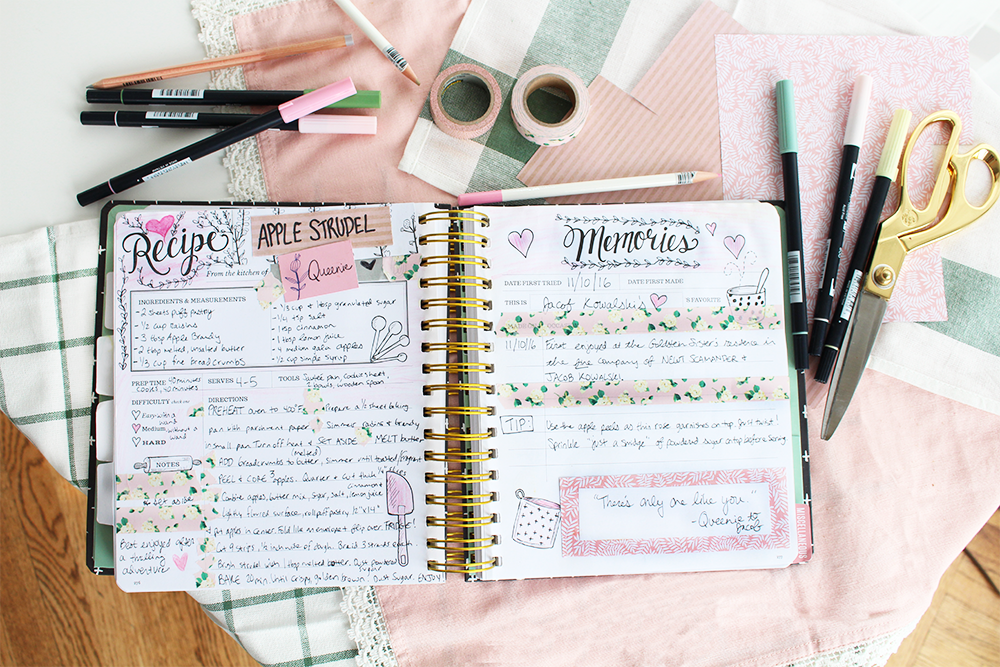 Recipe
APPLE STRUDEL
From the kitchen of
Queenie
INGREDIENTS & MEASUREMENTS
- 2 sheets puff pastry
- ½ cup raisins
- 3 tbsp Apple Brandy
- 2 tbsp melted, unsalted butter
- ⅓ cup fine breadcrumbs
- ⅓ cup & 1 tbsp granulated sugar
- ¼ tsp salt
- 1 tsp cinnamon
- 1 tbsp lemon juice
- 4 medium gala apples
- ½ cup simple syrup
PREP TIME 40 minutes
COOKS, 40 minutes
SERVES 4-5
TOOLS Sauté pan, cookie sheet,
bowls, wooden spoon
DIFFICULTY
Easy with a wand
Medium without a wand
HARD
DIRECTIONS
PREHEAT oven to 400°F. Prepare a ½ sheet baking
pan with parchment paper. Simmer raisins & brandy
in small pan. Turn off heat & SET ASIDE. MELT butter,
(melted)
ADD breadcrumbs to butter, simmer until toasted/fragrant
PEEL & CORE 3 apples. Quarter & cut thick ¼" slices
cinnamon &
Combine apples, butter mix, sugar, salt, lemon juice
lightly floured surface, roll puff pastry 12" x 14"
Put apples in center. Fold like an envelope & flip over. FRIDGE!
Cut 9 strips, ½ inch wide of dough. Braid 3 strands each
Brush strudel with 1 tbsp melted butter. Dust powdered
BAKE 20 min Until crispy, golden brown! Dust Sugar. ENJOY
NOTES
Best enjoyed after
a trailing
adventure
Memories
DATE FIRST TRIED 11/10/16
DATE FIRST MADE
THIS IS Jacob Kowalski's FAVORITE
11/10/16 First enjoyed at the Goldstein Sister's residence in
the fine company of NEWT SCAMANDER &
JACOB KOWALSKI
TIP: Use the apple peels as this cake garnishes on top, just twist!
Sprinkle "just a smidge" of powdered sugar atop before serving
"There's only one like you"
- Queenie to
Jacob
MISCELLANEOUS